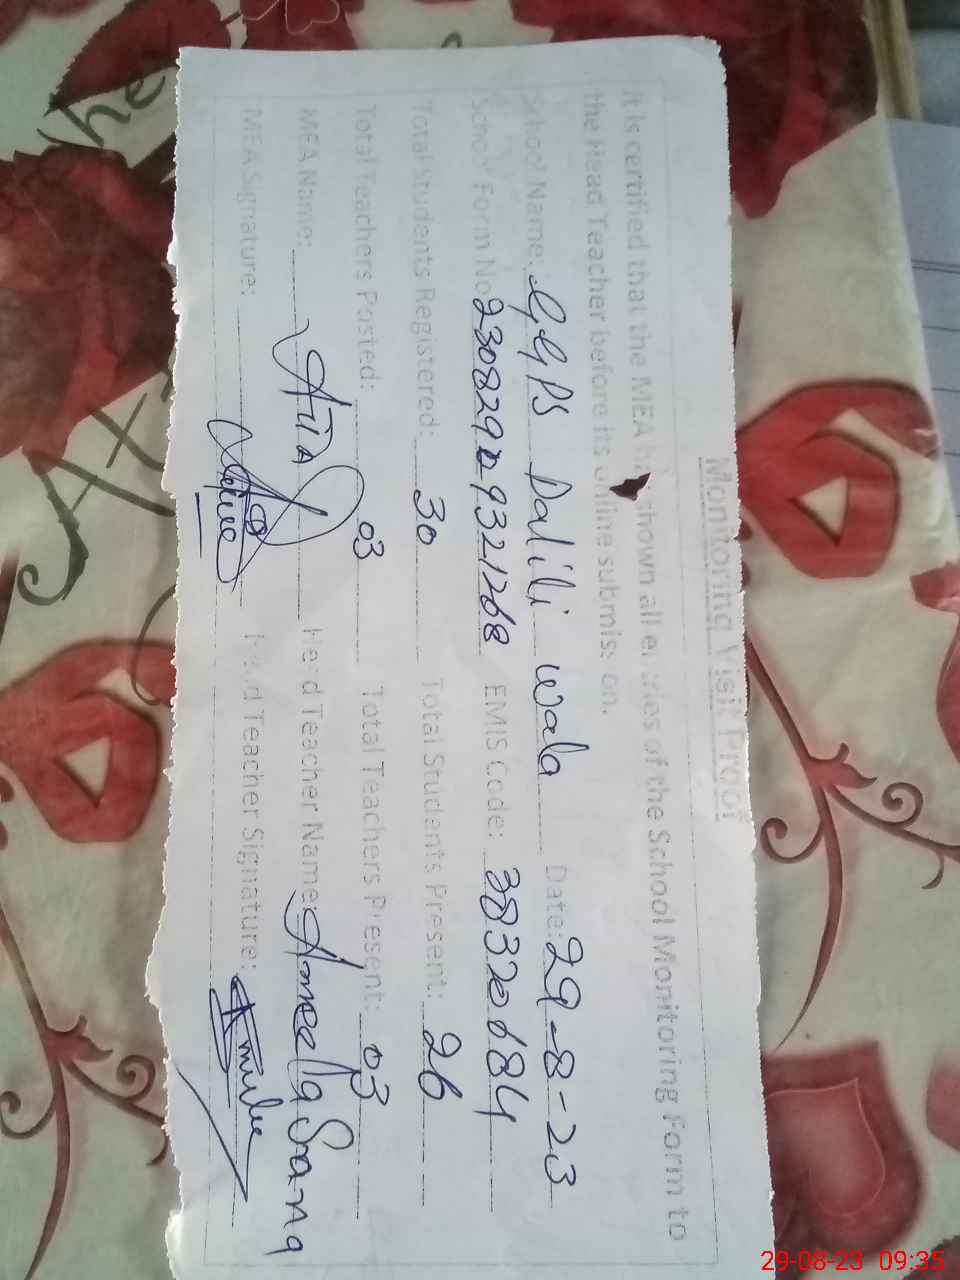 Monitoring Visit Proof
It is certified that the MEA has shown all entries of the School Monitoring Form to
the Head Teacher before its online submission.
School Name: GGPS Dalili wala Date: 29-8-23
School Form No 230829209321268 EMIS Code: 38320684
Total Students Registered: 30 Total Students Present: 26
Total Teachers Posted: 03 Total Teachers Present: 03
MEA Name: Head Teacher Name:
MEA Signature: Head Teacher Signature:
the
29-08-23 09:35